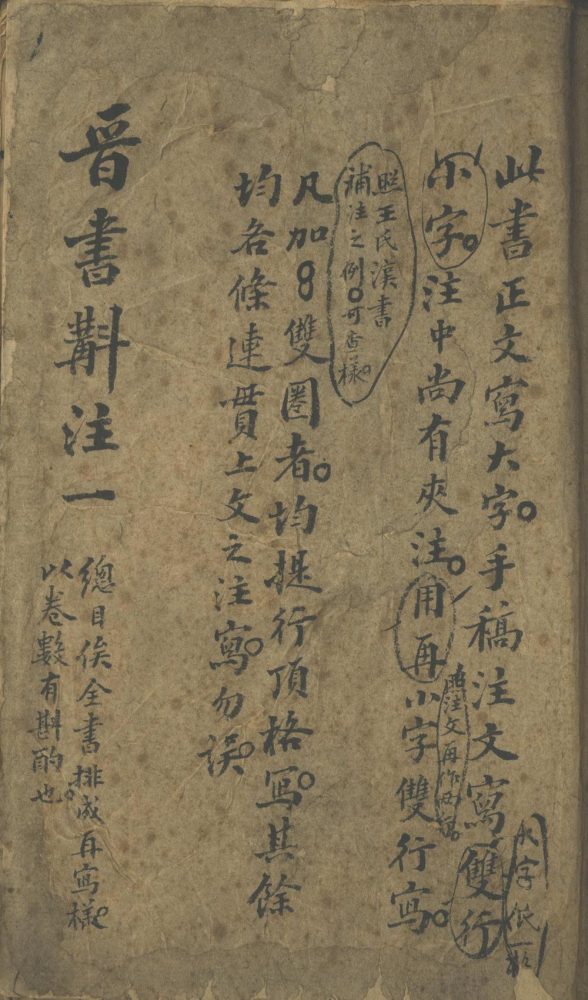 此書正文寫大字。手稿注文寫雙行
大字低一格
小字。注中尚有夾注。用再小字雙行寫。
照注文再作
照王氏漢書
補注之例。可查樣。
凡加8雙圈者。均提行頂格寫。其餘
均各條連貫上文之注寫。勿誤。
晉書斠注一
總目俟全書排成再寫樣。
以卷數有斟酌也。